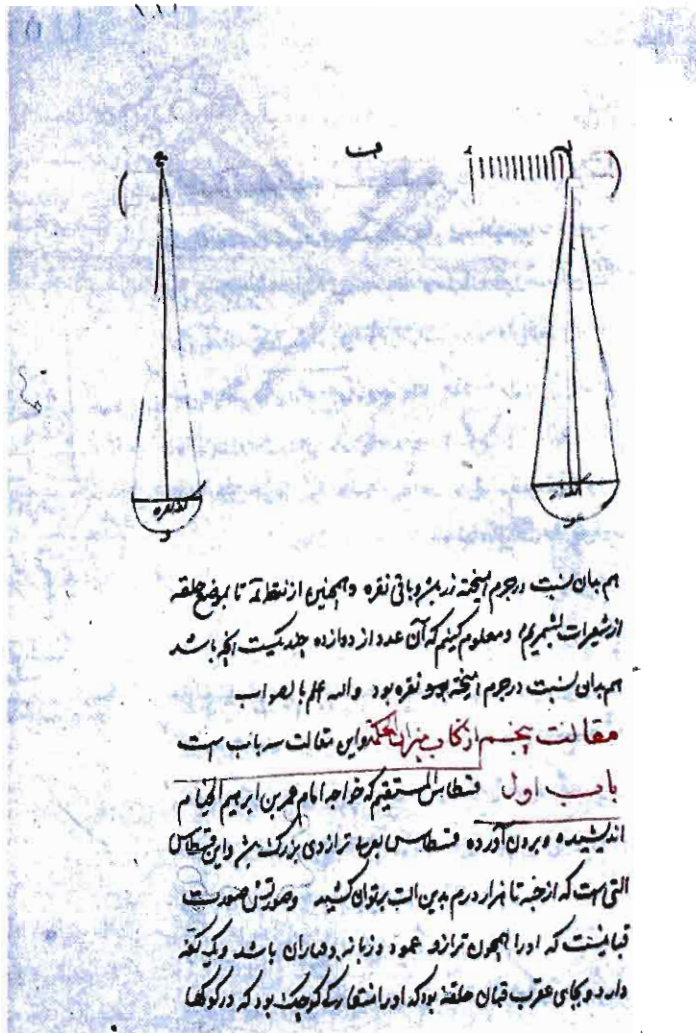 ف
کفه زر
کفه نقره
هم بدان نسبت در جرم آمیخته زر بود و باقی نقره و همچنین از نقطه تا بموضع حلقه
از شعیرات بشمریم و معلوم کنیم که آن عدد از دوازده چند یکست آنچه باشد
هم بدان نسبت در جرم آمیخته نقره بود والله اعلم بالصواب
مقالت پنجم از کتاب میزان الحکمة و این مقالت سه باب است
باب اول قسطاس المستقیم که خواجه امام عمر بن ابرهیم الخیام
اندیشیده و برون آورده قسطاس ترازوی بزرگ و این قسطاس
التی است که از حبه تا هزار درم بدین الت بر توان کشید و صورتش صورت
قبانیست که او را همچون ترازو عمود و زبانه باشد و یک کفه
دارد و بجای عقرب قبان حلقه بود که او را کوچک بود که در